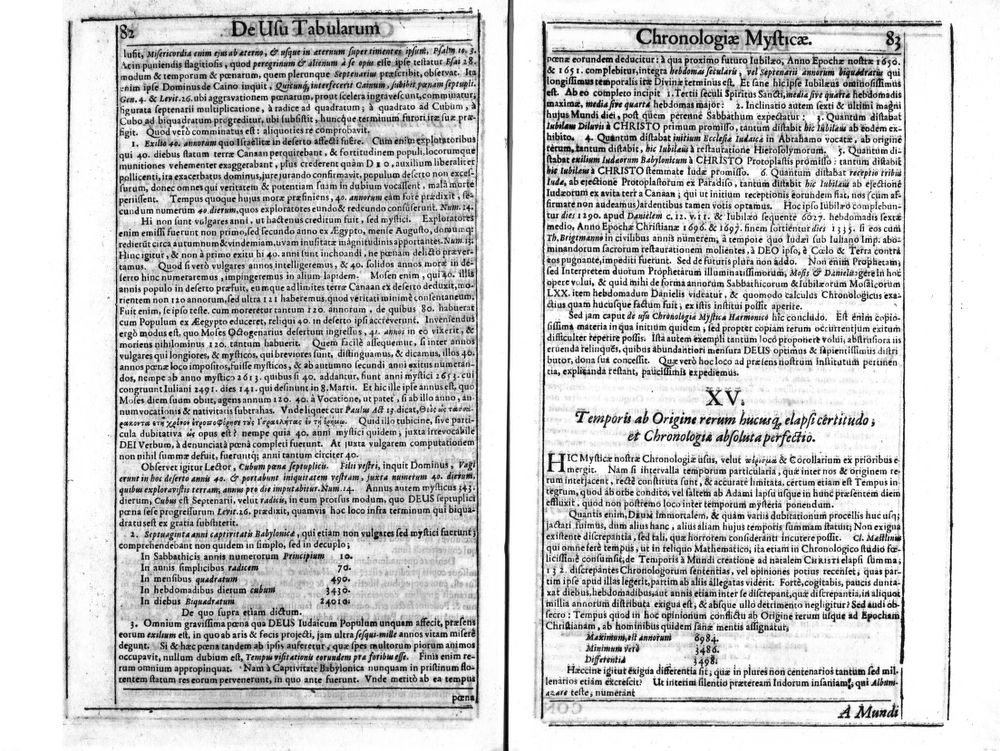 82 De Usu Tabularum
lusit, Misericordia enim ejus ab aterno, & usque in aternum super timentes ipsum, Psalm 10. 3.
At in puniendis flagitiosis, quod peregrinum & alienum à se opus esse ipse testatur Esai 28.
modum & temporum & pœnarum, quem plerunque Septenarius præscribit, observat. Ita
enim ipse Dominus de Caino inquit, Quicunq; interfecerit Cainum, subibit pœnam septupli.
Gen. 4. & Levit. 26. ubi aggravationem pœnarum, prout scelera ingravescunt, comminuatur,
figurata septenarii multiplicatione, à radice ad quadratum; à quadrato ad Cubum, à
Cubo ad biquadratum progreditur, ubi subsistit, huncque terminum furori iræ suæ præ-
figit. Quod verò comminatus est: aliquoties re comprobavit.
1. Exilio 40. annorum quo Israëlitæ in deserto affecti fuêre. Cum enim exploratoribus
qui 40. diebus statum terræ Canaan perquirebant, & fortitudinem populi, locorumque
munitiones vehementer exaggerabant, plus crederent quàm DEO, auxilium liberaliter
pollicenti, ira exacerbatus dominus, jure jurando confirmavit, populum deserto non exces-
surum, donec omnes qui veritatem & potentiam suam in dubium vocassent, mala morte
periissent. Tempus quoque hujus moræ præfiniens, 40. annorum eam fore prædixit, se-
cundum numerum 40 dierum, quos exploratores eundo & redeundo consûserunt. Num. 14.
Hi non sunt vulgares anni, ut hactenus creditum fuit, sed mystici. Exploratores
enim emissi fuerunt non primo, sed secundo anno ex Ægypto, mense Augusto, domumq;
redierût circa autumnum & vindemiam, uvam inusitatæ magnitudinis apportantes. Num. 13.
Hinc igitur, & non à primo exitu hi 40. anni sunt inchoandi, ne pœnam delicto præver-
tamus. Quod si verò vulgares annos intelligeremus, & 40. solidos annos moræ in de-
serto hinc numeraremus, impingeremus in alium lapidem. Mosen enim, qui 40. illis
annis populo in deserto præfuit, eumque ad limites terræ Canaan ex deserto deduxit, mo-
rientem non 120 annorum, sed ultra 121 haberemus, quod veritati minimè consentaneum.
Fuit enim, se ipso teste. cum moreretur tantum 120. annorum, de quibus 80. habuerat
cum Populum ex Ægypto educeret, reliqui 40. in deserto ipsi accreverunt. Inveniendus
ergò modus est, quo Moses Octogenarius desertum ingressus, 41. annos in eo vixerit, &
moriens nihilominus 120. tantum habuerit. Quem facilè assequemur, si inter annos
vulgares qui longiores, & mysticos, qui breviores sunt, distinguamus, & dicamus, illos 40.
annos pœnæ loco impositos, fuisse mysticos, & ab autumno secundi anni exitus numeran-
dos, nempe ab anno mystico 2613. quibus si 40. addantur, sunt anni mystici 2653. cui
congruunt Iuliani 2491. dies 141. qui desinunt in 8. Martii. Et hic ille ipse annus est, quo
Moses diem suum obiit, agens annum 120. 40. à Vocatione, ut patet, si ab illo anno, an-
num vocationis & nativitatis subtrahas. Vnde liquet cur Paulus Act 13. dicat, Θεὸς ὡς τεσσα-
ρακοντα ἔτη Quid illo tubicine, sive parti-
cula dubitativa ὡς opus est? nempe quia 40. anni mystici quidem, juxta irrevocabile
DEI Verbum, à denunciatâ pœnâ completi fuerunt. At juxta vulgarem computationem
non nihil summæ defuit, fueruntq; anni tantum circiter 40.
Observet igitur Lector, Cubum pœnæ septuplicis. Filii vestri, inquit Dominus, Vagi
erunt in hoc deserto annis 40. & portabunt iniquitatem vestram, juxta numerum 40. dierum,
quibus exploravistis terram, annus pro die imputabitur. Num. 14. Annus autem mysticus 343.
dierum, Cubus est Septenarii, velut radicis, in eum prorsus modum, quo DEUS septuplici
pœna sese progressurum Levit. 26. prædixit, quamvis hoc loco infra terminum qui biqua-
dratus est ex gratia substiterit.
2. Septuaginta anni captivitatis Babylonicæ, qui etiam non vulgares sed mystici fuerunt;
comprehendebant non quidem in simplo, sed in decuplo;
In Sabbathicis annis numerorum Principium 10.
In annis simplicibus radicem 70.
In mensibus quadratum 490.
In hebdomadibus dierum cubum 3430.
In diebus Biquadratum 24010.
De quo supra etiam dictum.
3. Omnium gravissima pœna qua DEUS Iudaicum Populum unquam affecit, præsens
eorum exilium est, in quo ab aris & fecis projecti, jam ultra sesqui-mille annos vitam miserè
degunt. Si & hæc pœna tandem ab ipsis auferetur, quæ spes multorum piorum animos
occupavit, nullum dubium est, Tempus visitationis eorundem præ foribus esse. Finis enim re-
rum omnium appropinquat. Nam à Captivitate Babylonica nunquam in pristinum flo-
rentem statum res eorum pervenerunt, in quo ante fuerunt. Vnde meritò ab ea tempus
pœna
Chronologiæ Mysticæ. 83
pœnæ eorundem deducitur: à qua proximo futuro Iubilæo, Anno Epochæ nostræ 1650.
& 1651. complebitur, integra hebdomas secularis, vel Septenarii annorum biquadratus qui
longissimus temporalis iræ Divinæ terminus est. Et sane hic ipse Iubilæus omnimodæ quietis
est. Ab eo completo incipit 1. Tertii seculi Spiritus Sancti, media sive quarta hebdomadis
maximæ, media sive quarta hebdomas major: 2. Inclinatio autem sexti & ultimi magni
hujus Mundi diei, post quem perenne Sabbathum expectatur: 3. Quantum distabat
Iubilæus Diluvii à CHRISTO primum promisso, tantum distabit hic Iubilæus ab eodem ex-
hibito. 4. Quantum distabat initium Ecclesiæ Iudaicæ in Abrahamo vocatæ, ab origine
rerum, tantum distabit, hic Iubilæus à restauratione Hierosolymorum. 5. Quantum di-
stabat exilium Iudæorum Babylonicum à CHRISTO Protoplastis promisso: tantum distabit
hic Iubilæus à CHRISTO stemmate Iudæ promisso. 6. Quantum distabat receptio tribus
Iuda, ab ejectione Protoplastorum ex Paradiso, tantum distabit hic Iubilæus ab ejectione
Iudæorum ex avita terra Canaan; qui ut initium receptionis eorundem fiat, nos etsi cum as-
firmare non audeamus, ardentibus tamen votis optamus. Hoc ipso Iubilæo complebun-
tur dies 1290. apud Danielem c. 12. v. 11. & Iubilæo sequente 6027. hebdomadis sextæ
medio, Anno Epochæ Christianæ 1696. & 1697. finem sortientur dies 1335. si eos cum
Th. Brigtmanno in civilibus annis numerem, à tempore quo Iudæi sub Iuliano Imp. abo-
minandorum sacrorum restaurationem molientes, à DEO ipso, è Cœlo & Terra contrà
eos pugnante, impediti fuerunt. Sed de futuris plura non addo. Non enim Prophetam;
sed Interpretem duorum Prophetarum illuminatissimorum, Mosis & Danielis agere in hoc
opere volui, & quid mihi de forma annorum Sabbathicorum & Iubilæorum Mosaicorum
LXX. item hebdomadum Danielis videatur, & quomodo calculus Chronologicus exa-
ctius quam hucusque factum fuit, ex istis institui possit aperire.
Sed jam caput de usu Chronologiæ Mysticæ Harmonico hîc concludo. Est enim copio-
sissima materia in qua initium quidem, sed propter copiam rerum occurrentium exitum
difficulter reperire possis. Ista autem exempli tantum locô proponere volui, abstrusiora iis
eruenda relinquês, quibus abundantiori mensura DEUS optimus & sapientissimus distri
butor, dona sua concessit. Quæ verò hoc loco ad præsens nostrum Institutum pertinen-
tia, explicanda restant, paucissimis expediemus.
XV.
Temporis ab Origine rerum hucusq, elapsi certitudo,
et Chronologiæ absoluta perfectio.
HIC Mysticæ nostræ Chronologiæ usus, velut & Corollarium ex prioribus e-
mergit. Nam si intervalla temporum particularia, quæ inter nos & originem re-
rum interjacent, rectè constituta sunt, & accuratè limitata, certum etiam est Tempus in-
tegrum, quod ab orbe condito, vel saltem ab Adami lapsu usque in hunc præsentem diem
effluxit. quod non postremo loco inter temporum mysteria ponendum.
Quantis enim, DEUM immortalem, & quàm variis dubitationum procellis huc usq;
jactati fuimus, dum alius hanc, alius aliam hujus temporis summam statuit; Non exigua
existente discrepantia, sed tali, quæ horrorem consideranti incutere possit. Cl. Mæstlinus
qui omne ferè tempus, ut in reliquo Mathematico, ita etiam in Chronologico studio fœ-
licissimè consumsit, de Temporis à Mundi creatione ad natalem CHRISTI elapsi summa,
132. discrepantes Chronologorum sententias, vel opiniones potius recenset, quas par-
tim ipse apud illas legerit, partim ab aliis allegatas viderit. Fortè, cogitabis, paucis dunta-
xat diebus, hebdomadibus, aut annis etiam inter se discrepant, quæ discrepantia, in aliquot
millia annorum distributa exigua est, & absque ullo detrimento negligitur? Sed audi ob-
secro: Tempus quod in hoc opinionum conflictu ab Origine rerum usque ad Epocham
Christianam, ab hominibus quidem sanæ mentis assignatur,
Maximum, est annorum 6984.
Minimum verò 3486.
Differentia 3498.
Hæccine igitur exigua differentia sit; quæ in plures non centenarios tantum sed mil-
lenarios etiam excrescit? Ut interim silentio præteream Indorum insaniam, qui Albu-
azare teste, numerant
A Mundi